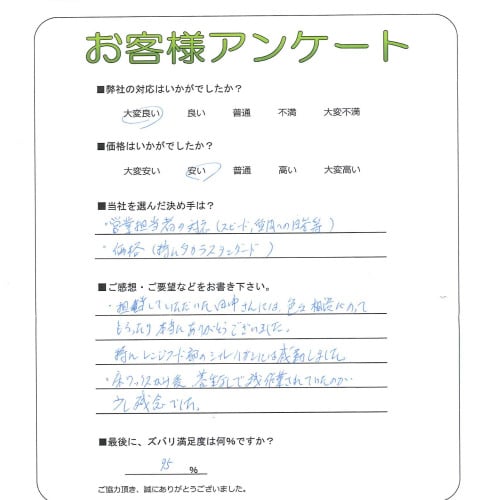 お客様アンケート
■弊社の対応はいかがでしたか?
大変良い 良い 普通 不満 大変不満
■価格はいかがでしたか?
大変安い 安い 普通 高い 大変高い
■当社を選んだ決め手は?
・営業担当者の対応(スピード,質問への回答等)
・価格(特にタカラスタンダード)
■ご感想・ご要望などをお書き下さい。
・担当していただいた田中さんには、色々相談にのって
もらったり本当にありがとうございました。
特にレンジフード部の には感動しました。
・床ワックスがけ後、養生なしで残作業されていたのが
少し残念でした。
■最後に、ズバリ満足度は何%ですか?
95 %
ご協力頂き、誠にありがとうございました。